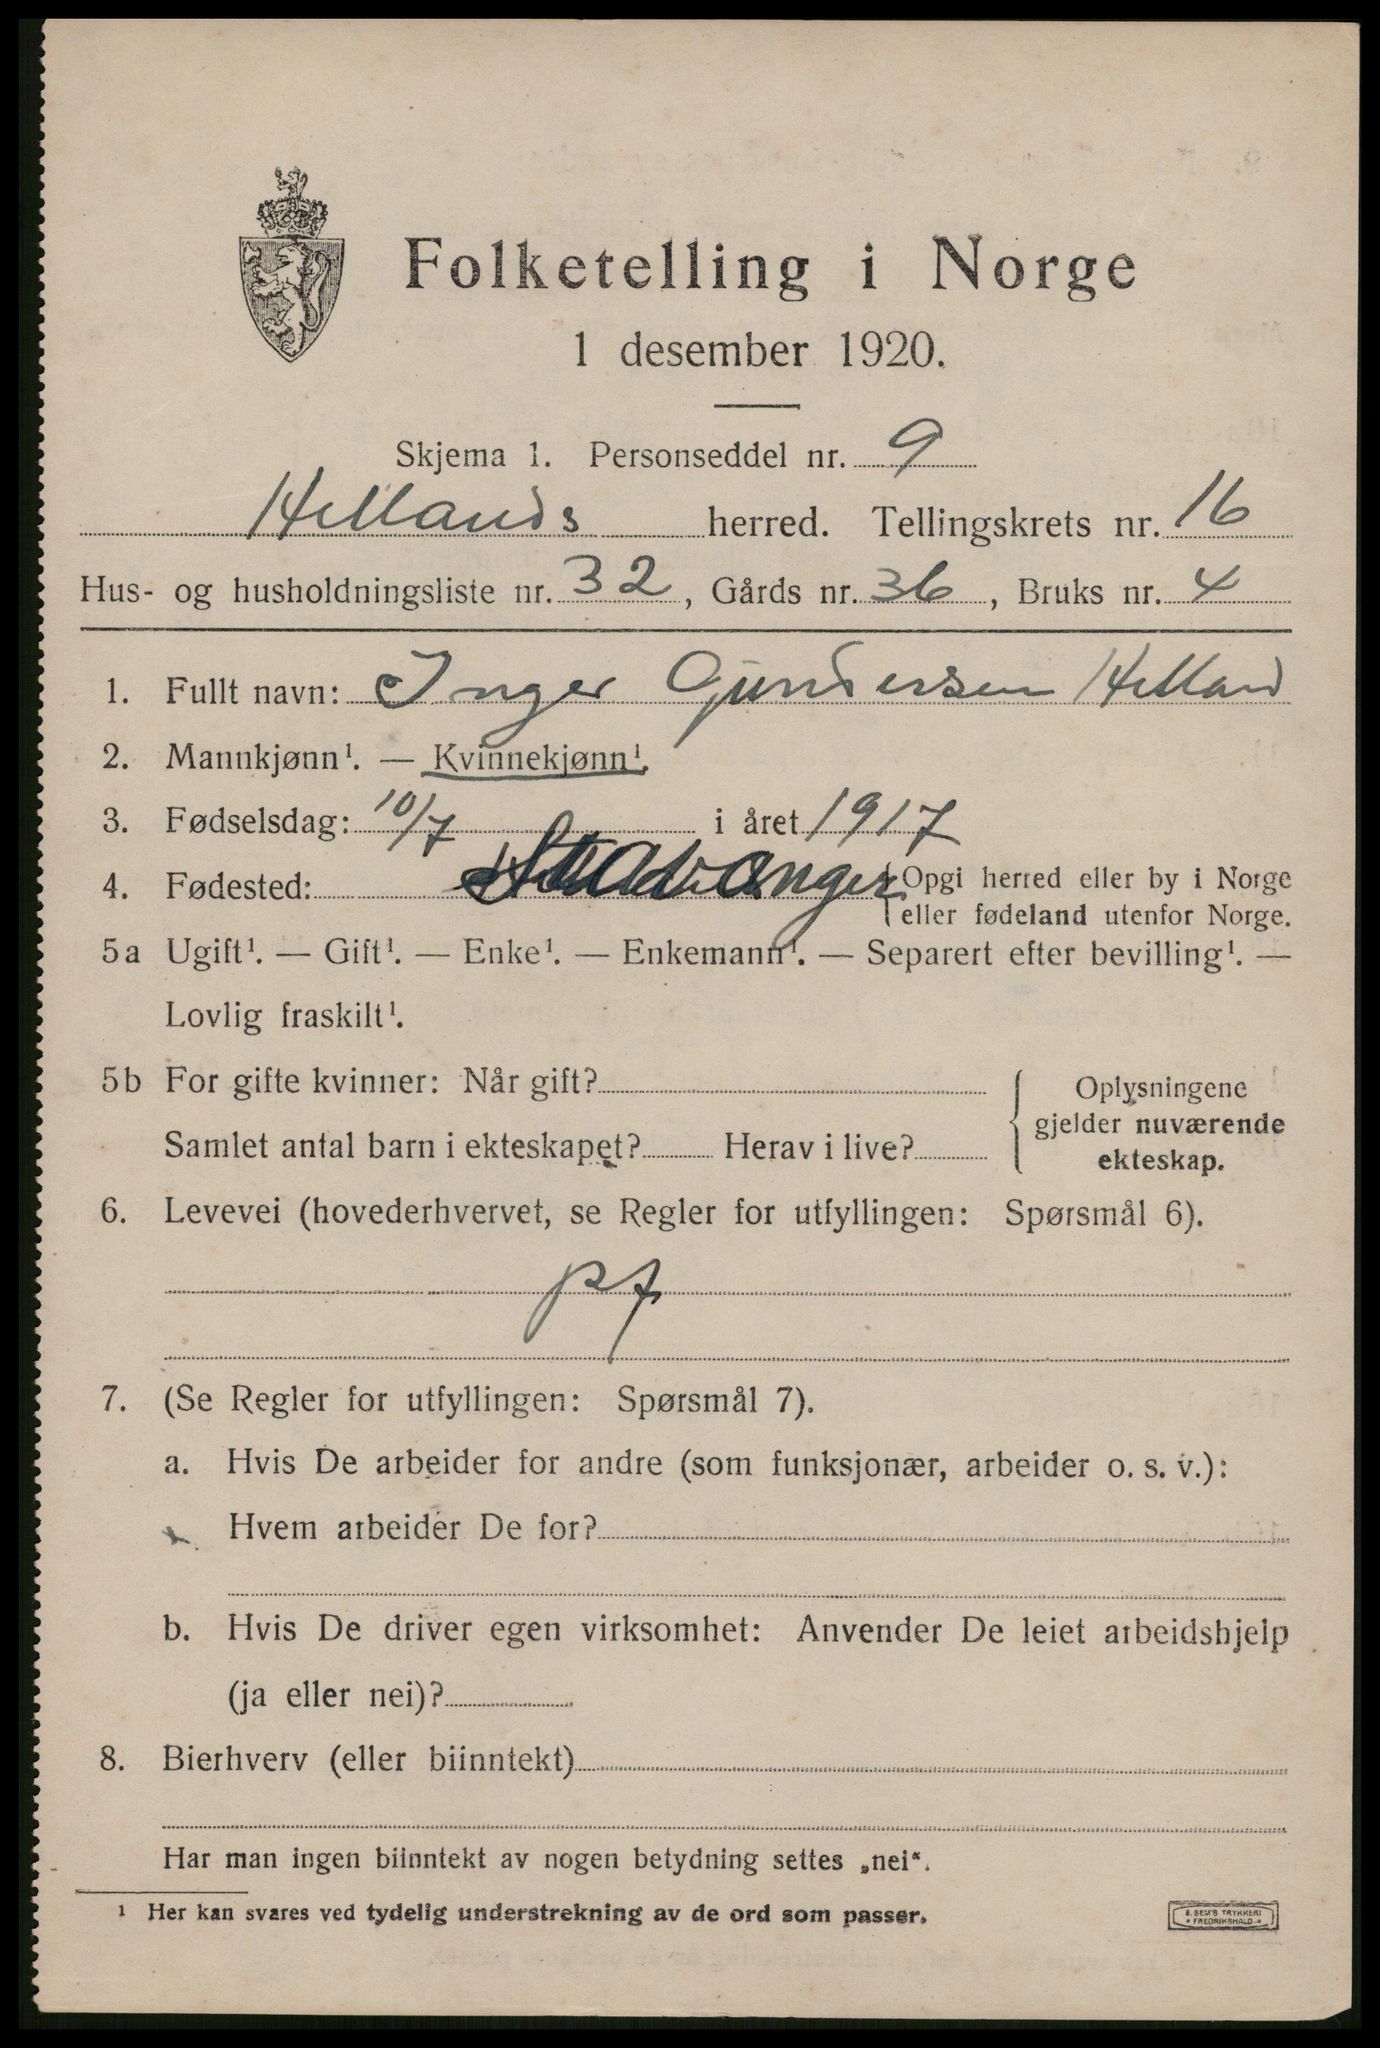 Folketelling i Norge
1 desember 1920.
Skjema 1. Personseddel nr. 9
Hetlands herred. Tellingskrets nr. 16
Hus- og husholdningsliste nr. 32, Gårds nr. 36, Bruks nr. 4
1. Fullt navn: Inger Gundersen Hetland
2. Mannkjønn¹. — Kvinnekjønn¹.
3. Fødselsdag: 10/7 i året 1917
4. Fødested: Stavanger {Opgi herred eller by i Norge
eller fødeland utenfor Norge.
5a Ugift¹. — Gift¹. — Enke¹. — Enkemann¹. — Separert efter bevilling¹. —
Lovlig fraskilt¹.
5b For gifte kvinner: Når gift?
Samlet antal barn i ekteskapet? Herav i live?
Oplysningene
gjelder nuværende
ekteskap.
6. Levevei (hovederhvervet, se Regler for utfyllingen: Spørsmål 6).
pf
7. (Se Regler for utfyllingen: Spørsmål 7).
a. Hvis De arbeider for andre (som funksjonær, arbeider o. s. v.):
Hvem arbeider De for?
b. Hvis De driver egen virksomhet: Anvender De leiet arbeidshjelp
(ja eller nei)?
8. Bierhverv (eller biinntekt)
Har man ingen biinntekt av nogen betydning settes „nei“.
¹ Her kan svares ved tydelig understrekning av de ord som passer.
E. SEM'S TRYKKERI
FREDRIKSHALD